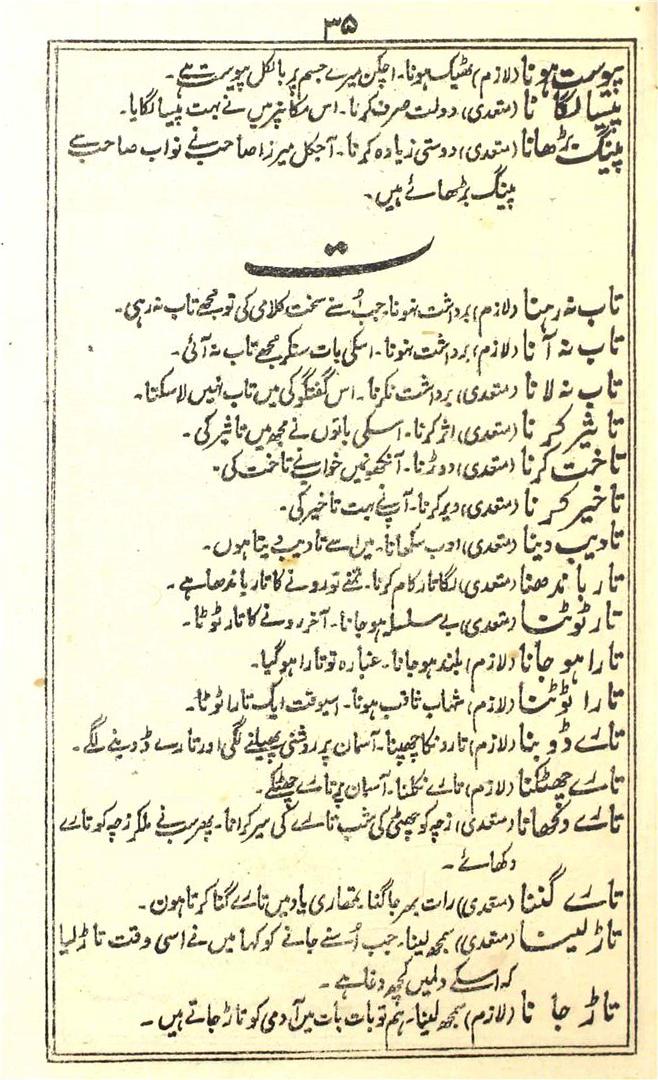 ۳۵
پیوست ہونا (لازم) ٹھیک ہونا۔ اچکن میرے جسم پر بالکل پیوست ہے۔
پیسا لگانا (متعدی) دولت صرف کرنا۔ اس مکانپر میں نے بہت پیسا لگایا۔
پینگ بڑھانا (متعدی) دوستی زیادہ کرنا۔ آجکل میرزا صاحب نے نواب صاحب سے
پینگ بڑھائے ہیں۔
ت
تاب نہ رہنا (لازم) برداشت نہونا۔ جب اُسنے سخت کلامی کی تو مجھے تاب نہ رہی۔
تاب نہ آنا (لازم) برداشت نہونا۔ اسکی بات سنکر مجھے تاب نہ آئی۔
تاب نہ لانا (متعدی) برداشت نکرنا۔ اس گفتگو کی میں تاب نہیں لا سکتا۔
تاثیر کرنا (متعدی) اثر کرنا۔ اسکی باتوں نے مجھ میں تاثیر کی۔
تاخت کرنا (متعدی) دوڑنا۔ آنکھونمیں خواب نے تاخت کی۔
تاخیر کرنا (متعدی) دیر کرنا۔ آپنے بہت تاخیر کی۔
تادیب دینا (متعدی) ادب سکھانا۔ میں اسے تادیب دیتا ہوں۔
تار باندھنا (متعدی) لگاتار کام کرنا۔ تمنے تو رونے کا تار باندھا ہے۔
تار ٹوٹنا (متعدی) بے سلسلہ ہو جانا۔ آخر رونے کا تار ٹوٹا۔
تارا ہو جانا (لازم) بلند ہو جانا۔ غبارہ تو تارا ہو گیا۔
تارا ٹوٹنا (لازم) شہاب ثاقب ہونا۔ اسیوقت ایک تارا ٹوٹا۔
تارے ڈوبنا (لازم) تارونکا چھپنا۔ آسمان پر روشنی پھیلنے لگی اور تارے ڈوبنے لگے۔
تارے چھٹکنا (لازم) تارے نکلنا۔ آسمان پر تارے چھٹکے۔
تارے دکھانا (متعدی) زچہ کو چھٹی کی شب تارے کی سیر کرانا۔ پھر سب نے ملکر زچہ کو تارے
دکھائے۔
تارے گننا (متعدی) رات بھر جاگنا۔ تمھاری یاد میں تارے گنا کرتا ہون۔
تاڑ لینا (متعدی) سمجھ لینا۔ جب اُسنے جانے کو کہا میں نے اسی وقت تاڑ لیا
کہ اسکے دلمیں کچھ دغا ہے۔
تاڑ جانا (لازم) سمجھ لینا۔ ہم تو بات بات میں آدمی کو تاڑ جاتے ہیں۔